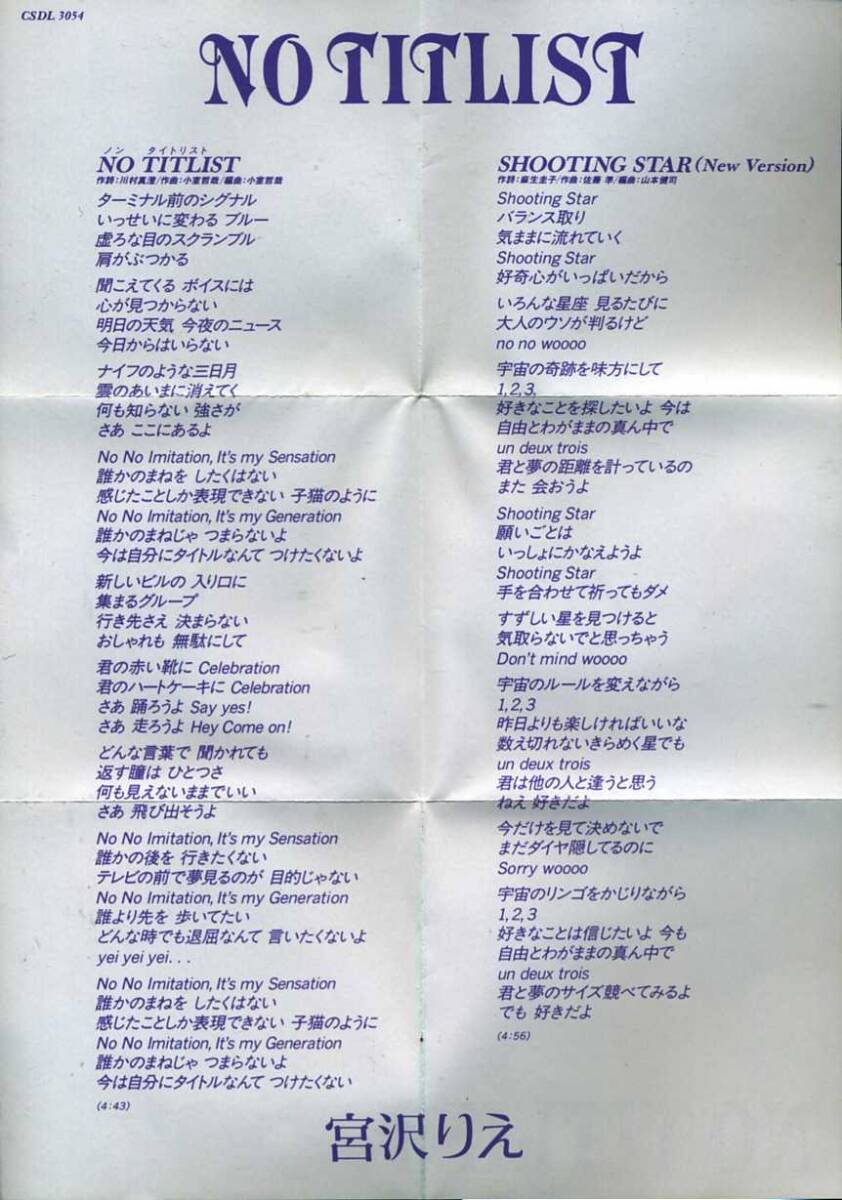 CSDL 3054
NO TITLIST
ノン タイトリスト
NO TITLIST
作詩:川村真澄/作曲:小室哲哉/編曲:小室哲哉
ターミナル前のシグナル
いっせいに変わる ブルー
虚ろな目のスクランブル
肩がぶつかる
聞こえてくる ボイスには
心が見つからない
明日の天気 今夜のニュース
今日からはいらない
ナイフのような三日月
雲のあいまに消えてく
何も知らない 強さが
さあ ここにあるよ
No No Imitation, It's my Sensation
誰かのまねを したくはない
感じたことしか表現できない 子猫のように
No No Imitation, It's my Generation
誰かのまねじゃ つまらないよ
今は自分にタイトルなんて つけたくないよ
新しいビルの 入り口に
集まるグループ
行き先さえ 決まらない
おしゃれも 無駄にして
君の赤い靴に Celebration
君のハートケーキに Celebration
さあ 踊ろうよ Say yes!
さあ 走ろうよ Hey Come on!
どんな言葉で 聞かれても
返す瞳は ひとつさ
何も見えないままでいい
さあ 飛び出そうよ
No No Imitation, It's my Sensation
誰かの後を 行きたくない
テレビの前で夢見るのが 目的じゃない
No No Imitation, It's my Generation
誰より先を 歩いてたい
どんな時でも退屈なんて 言いたくないよ
yei yei yei. . .
No No Imitation, It's my Sensation
誰かのまねを したくはない
感じたことしか表現できない 子猫のように
No No Imitation, It's my Generation
誰かのまねじゃ つまらないよ
今は自分にタイトルなんて つけたくない
(4:43)
SHOOTING STAR (New Version)
作詩:麻生圭子/作曲:佐藤 準/編曲:山本健司
Shooting Star
バランス取り
気ままに流れていく
Shooting Star
好奇心がいっぱいだから
いろんな星座 見るたびに
大人のウソが判るけど
no no woooo
宇宙の奇跡を味方にして
1,2,3,
好きなことを探したいよ 今は
自由とわがままの真ん中で
un deux trois
君と夢の距離を計っているの
また 会おうよ
Shooting Star
願いごとは
いっしょにかなえようよ
Shooting Star
手を合わせて祈ってもダメ
すずしい星を見つけると
気取らないでと思っちゃう
Don't mind woooo
宇宙のルールを変えながら
1,2,3
昨日よりも楽しければいいな
数え切れないきらめく星でも
un deux trois
君は他の人と逢うと思う
ねえ 好きだよ
今だけを見て決めないで
まだダイヤ隠してるのに
Sorry woooo
宇宙のリンゴをかじりながら
1,2,3
好きなことは信じたいよ 今も
自由とわがままの真ん中で
un deux trois
君と夢のサイズ競べてみるよ
でも 好きだよ
(4:56)
宮沢りえ